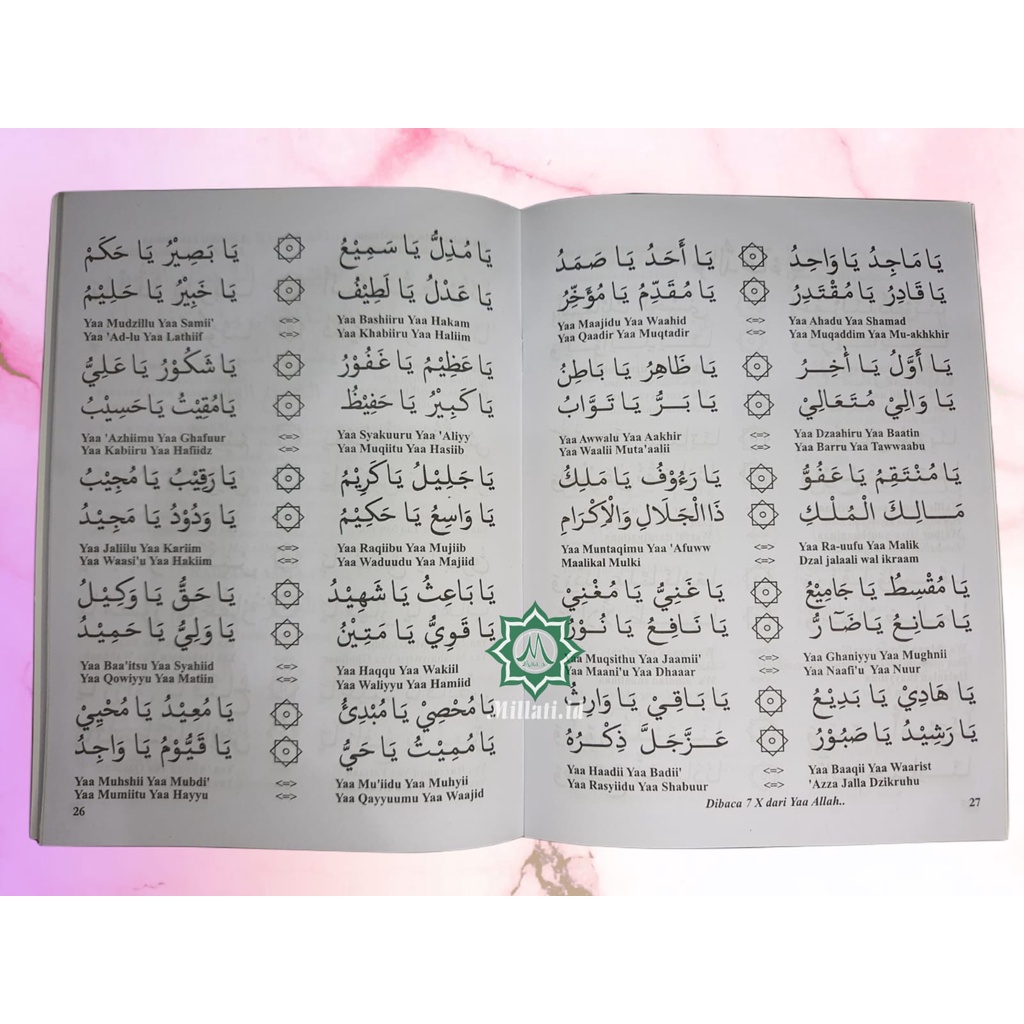 يَا مُذِلُّ يَا سَمِيْعُ ۞ يَا بَصِيْرُ يَا حَكَمْ
يَا عَدْلُ يَا لَطِيْفُ ۞ يَا خَبِيْرُ يَا حَلِيْمُ
Yaa Mudzillu Yaa Samii' <=> Yaa Bashiiru Yaa Hakam
Yaa 'Ad-lu Yaa Lathiif <=> Yaa Khabiiru Yaa Haliim
يَا عَظِيْمُ يَا غَفُوْرُ ۞ يَا شَكُوْرُ يَا عَلِيُّ
يَا كَبِيْرُ يَا حَفِيْظُ ۞ يَا مُقِيْتُ يَا حَسِيْبُ
Yaa 'Azhiimu Yaa Ghafuur <=> Yaa Syakuuru Yaa 'Aliyy
Yaa Kabiiru Yaa Hafiidz <=> Yaa Muqiitu Yaa Hasiib
يَا جَلِيْلُ يَا كَرِيْمُ ۞ يَا رَقِيْبُ يَا مُجِيْبُ
يَا وَاسِعُ يَا حَكِيْمُ ۞ يَا وَدُوْدُ يَا مَجِيْدُ
Yaa Jaliilu Yaa Kariim <=> Yaa Raqiibu Yaa Mujiib
Yaa Waasi'u Yaa Hakiim <=> Yaa Waduudu Yaa Majiid
يَا بَاعِثُ يَا شَهِيْدُ ۞ يَا حَقُّ يَا وَكِيْلُ
يَا قَوِيُّ يَا مَتِيْنُ ۞ يَا وَلِيُّ يَا حَمِيْدُ
Yaa Baa'itsu Yaa Syahiid <=> Yaa Haqqu Yaa Wakiil
Yaa Qowiyyu Yaa Matiin <=> Yaa Waliyyu Yaa Hamiid
يَا مُحْصِيْ يَا مُبْدِئُ ۞ يَا مُعِيْدُ يَا مُحْيِيْ
يَا مُمِيْتُ يَا حَيُّ ۞ يَا قَيُّوْمُ يَا وَاجِدُ
Yaa Muhshii Yaa Mubdi' <=> Yaa Mu'iidu Yaa Muhyii
Yaa Mumiitu Yaa Hayyu <=> Yaa Qayyuumu Yaa Waajid
26
يَا مَاجِدُ يَا وَاحِدُ ۞ يَا أَحَدُ يَا صَمَدُ
يَا قَادِرُ يَا مُقْتَدِرُ ۞ يَا مُقَدِّمُ يَا مُؤَخِّرُ
Yaa Maajidu Yaa Waahid <=> Yaa Ahadu Yaa Shamad
Yaa Qaadir Yaa Muqtadir <=> Yaa Muqaddim Yaa Mu-akhkhir
يَا أَوَّلُ يَا أٰخِرُ ۞ يَا ظَاهِرُ يَا بَاطِنُ
يَا وَالِيْ مُتَعَالِيْ ۞ يَا بَرُّ يَا تَوَّابُ
Yaa Awwalu Yaa Aakhir <=> Yaa Dzaahiru Yaa Baatin
Yaa Waalii Muta'aalii <=> Yaa Barru Yaa Tawwaabu
يَا مُنْتَقِمُ يَا عَفُوُّ ۞ يَا رَءُوْفُ يَا مَلِكُ
مَـالِكَ الْمُلْكِ ۞ ذَاالْجَلَالِ وَالْاِكْرَامِ
Yaa Muntaqimu Yaa 'Afuww <=> Yaa Ra-uufu Yaa Malik
Maalikal Mulki <=> Dzal jalaali wal ikraam
يَا مُقْسِطُ يَا جَامِيْعُ ۞ يَا غَنِيُّ يَا مُغْنِيْ
يَا مَانِعُ يَا ضَآرُّ ۞ يَا نَافِعُ يَا نُوْرُ
Yaa Muqsithu Yaa Jaamii' <=> Yaa Ghaniyyu Yaa Mughnii
Yaa Maani'u Yaa Dhaaar <=> Yaa Naafi'u Yaa Nuur
يَا هَادِيْ يَا بَدِيْعُ ۞ يَا بَاقِيْ يَا وَارِثُ
يَا رَشِيْدُ يَا صَبُوْرُ ۞ عَـزَّجَلَّ ذِكْـرُهُ
Yaa Haadii Yaa Badii' <=> Yaa Baaqii Yaa Waarist
Yaa Rasyiidu Yaa Shabuur <=> 'Azza Jalla Dzikruhu
Dibaca 7 X dari Yaa Allah..
27
Millati.id